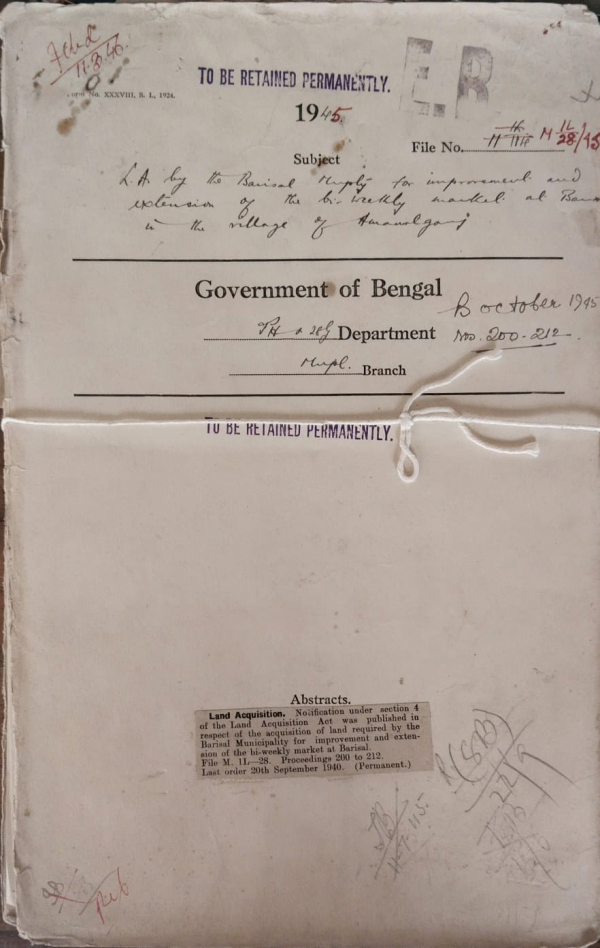 Filed
11.8.46
E.B
TO BE RETAINED PERMANENTLY.
Form No. XXXVIII, S. I., 1924.
1945.
File No. M 1L/28/45
Subject
L.A. by the Barisal Muplty for improvement and
extension of the bi-weekly market at
in the village of Amanatganj
Government of Bengal
Department
B October 1945
Nos. 200-212.
Mupl. Branch
TO BE RETAINED PERMANENTLY.
Abstracts.
Land Acquisition. Notification under section 4
of the Land Acquisition Act was published in
respect of the acquisition of land required by the
Barisal Municipality for improvement and exten-
sion of the bi-weekly market at Barisal.
File M. 1L—28. Proceedings 200 to 212.
Last order 20th September 1940. (Permanent.)
R(SB)
22/9